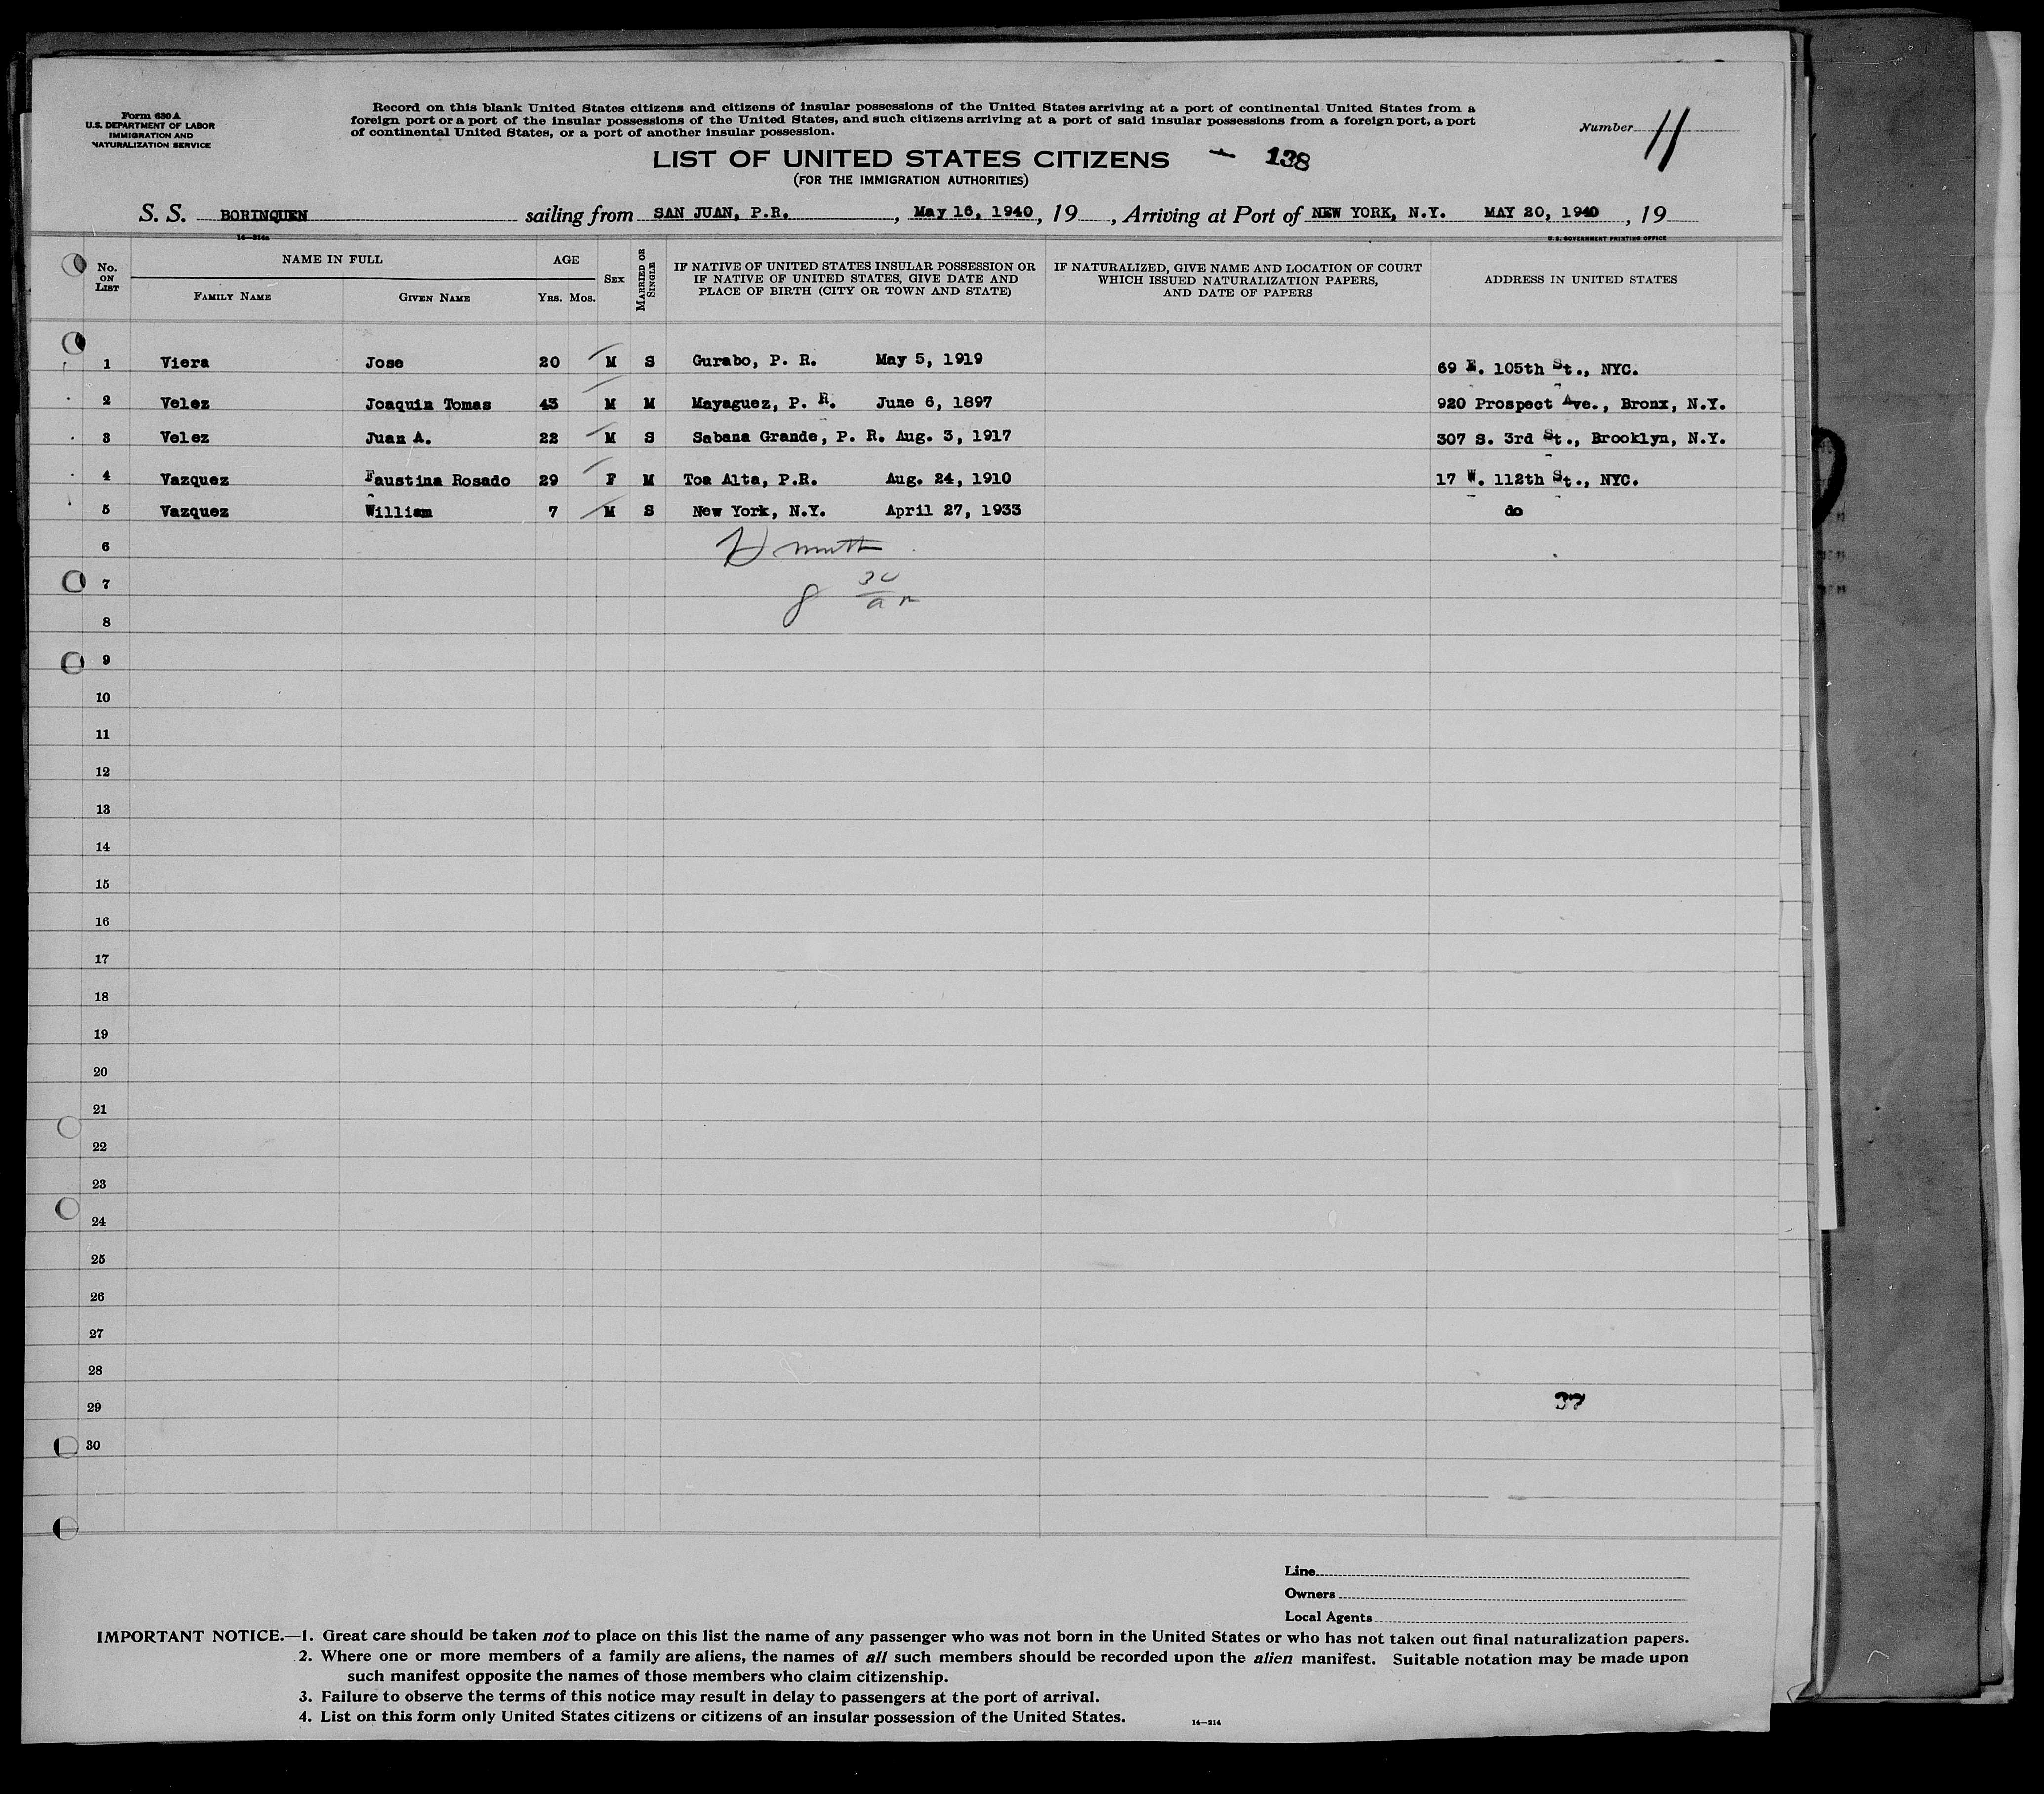 Form 630 A
U.S. DEPARTMENT OF LABOR
IMMIGRATION AND
NATURALIZATION SERVICE
Record on this blank United States citizens and citizens of insular possessions of the United States arriving at a port of continental United States from a
foreign port or a port of the insular possessions of the United States, and such citizens arriving at a port of said insular possessions from a foreign port, a port
of continental United States, or a port of another insular possession.
Number 11
LIST OF UNITED STATES CITIZENS 138
(FOR THE IMMIGRATION AUTHORITIES)
S. S. BORINQUEN sailing from SAN JUAN, P.R. , May 16, 1940, 19 , Arriving at Port of NEW YORK, N.Y. MAY 20, 1940 , 19
14—214a U. S. GOVERNMENT PRINTING OFFICE
No. ON LIST NAME IN FULL FAMILY NAME GIVEN NAME AGE YRS. MOS. SEX MARRIED OR SINGLE IF NATIVE OF UNITED STATES INSULAR POSSESSION OR IF NATIVE OF UNITED STATES, GIVE DATE AND PLACE OF BIRTH (CITY OR TOWN AND STATE) IF NATURALIZED, GIVE NAME AND LOCATION OF COURT WHICH ISSUED NATURALIZATION PAPERS, AND DATE OF PAPERS ADDRESS IN UNITED STATES
1 Viera Jose 20 M S Gurabo, P. R. May 5, 1919 69 E. 105th St., NYC.
2 Velez Joaquin Tomas 43 M M Mayaguez, P. R. June 6, 1897 920 Prospect Ave., Bronx, N.Y.
3 Velez Juan A. 22 M S Sabana Grande, P. R. Aug. 3, 1917 307 S. 3rd St., Brooklyn, N.Y.
4 Vazquez Faustina Rosado 29 F M Toa Alta, P.R. Aug. 24, 1910 17 W. 112th St., NYC.
5 Vazquez William 7 M S New York, N.Y. April 27, 1933 do
6
7
8
9
10
11
12
13
14
15
16
17
18
19
20
21
22
23
24
25
26
27
28
29 37
30
Line
Owners
Local Agents
IMPORTANT NOTICE.—1. Great care should be taken not to place on this list the name of any passenger who was not born in the United States or who has not taken out final naturalization papers.
2. Where one or more members of a family are aliens, the names of all such members should be recorded upon the alien manifest. Suitable notation may be made upon
such manifest opposite the names of those members who claim citizenship.
3. Failure to observe the terms of this notice may result in delay to passengers at the port of arrival.
4. List on this form only United States citizens or citizens of an insular possession of the United States. 14—214